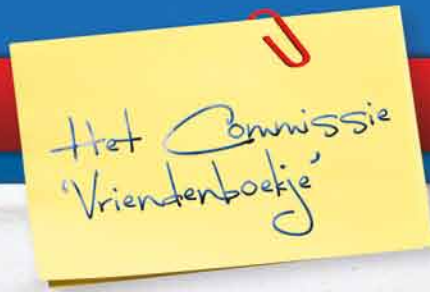 Het Commissie
'Vriendenboekje'